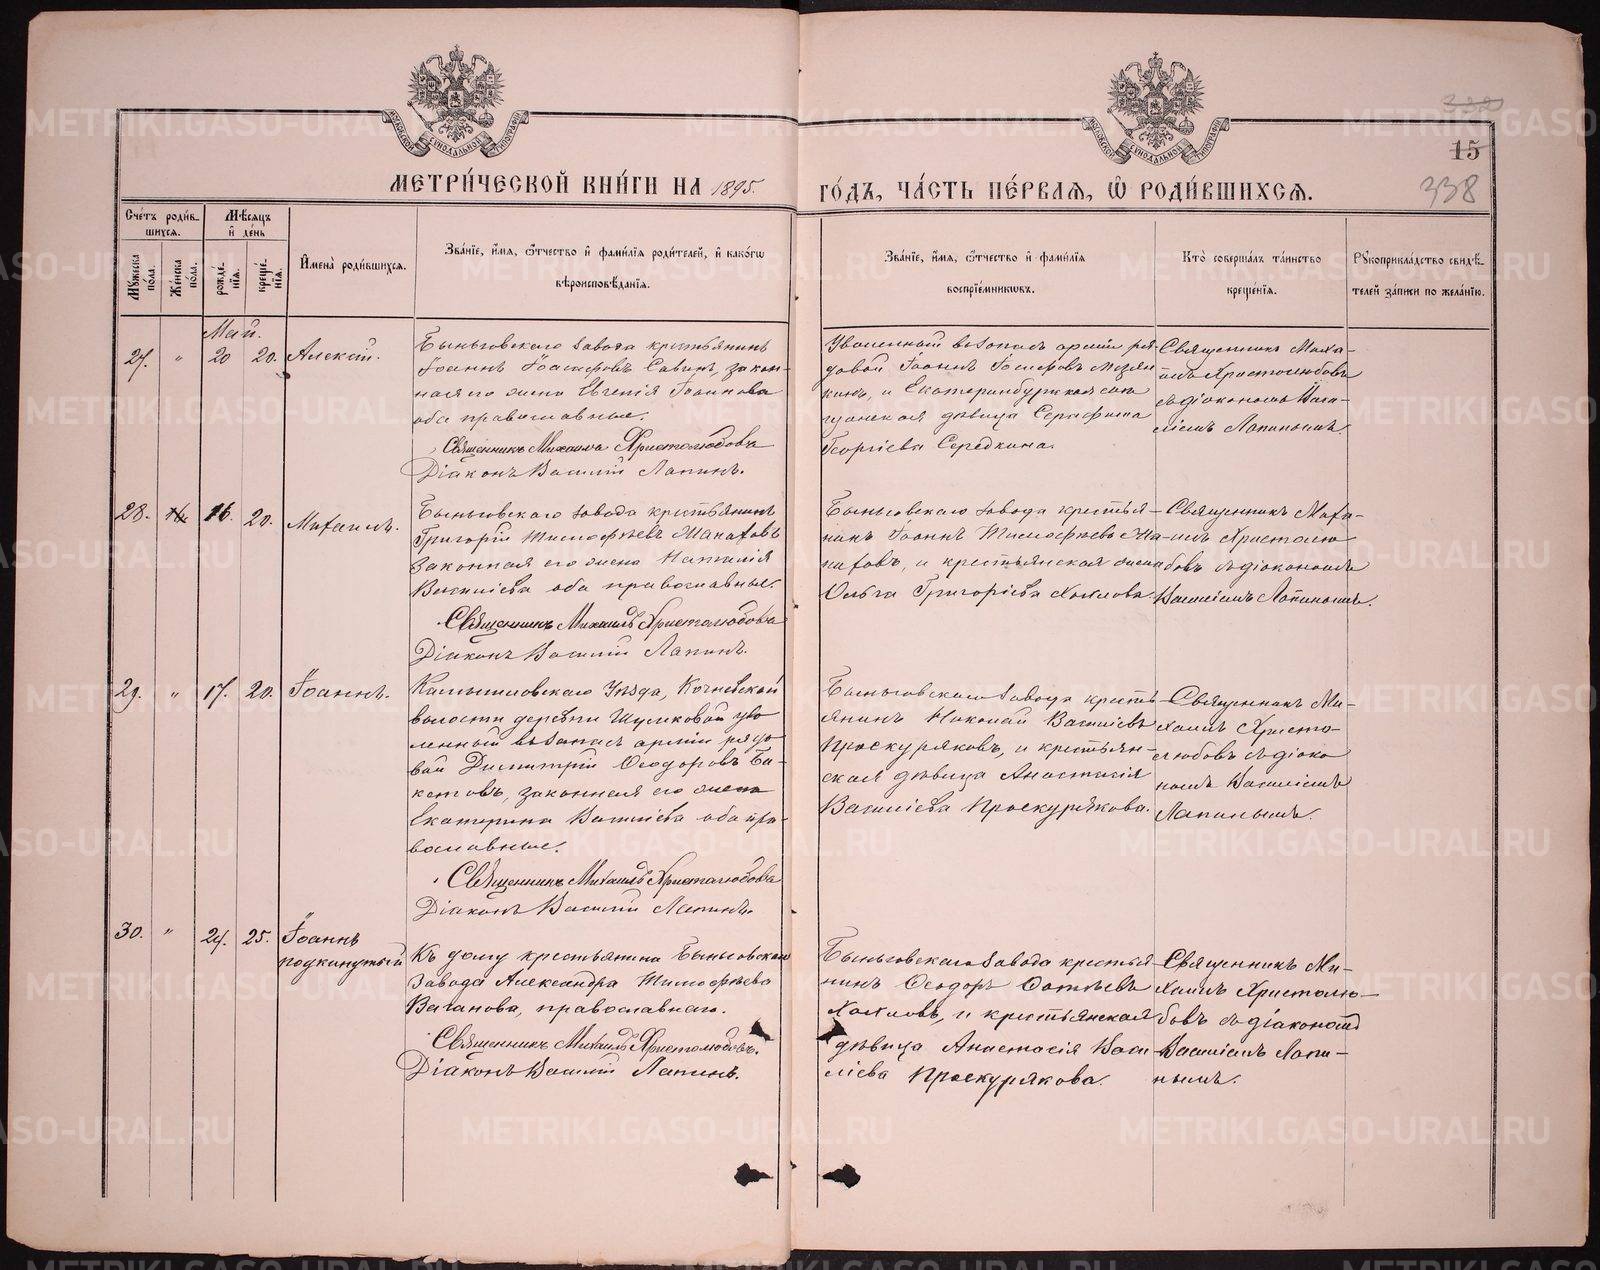 МОСКОВСКОЙ СУНОДАЛЬНОЙ ТИПОГРАФІИ
МОСКОВСКОЙ СУНОДАЛЬНОЙ ТИПОГРАФІИ
332
15
338
МЕТРИ́ЧЕСКОЙ КНИ́ГИ НА 1895 ГО́ДЪ, ЧА́СТЬ ПЕ́РВАЯ, Ѿ РОДИ́ВШИХСЯ.
Сче́тъ роди́в-
шихся.
Мѣ́сяцъ
и҆ де́нь
Мꙋ́жеска
по́ла.
Же́нска
по́ла.
рожде́-
нїя.
креще́-
нїя.
И҆мена̀ роди́вшихся.
Зва́нїе, и҆́мя, ѻ҆́тчество и҆ фами́лїя роди́телей, и҆ како́гѡ
вѣроисповѣ́данїя.
Зва́нїе, и҆́мя, ѻ҆́тчество и҆ фами́лїя
воспрїе́мникѡвъ.
Кто̀ соверша́лъ та́инство
креще́нїя.
Рꙋкоприкла́дство свидѣ́-
телей за́писи по жела́нїю.
Май.
27. " 20 20. Алексій.
Быньговскаго завода крестьянинъ
Іоаннъ Іоасифовъ Савинъ, закон-
ная его жена Евгенія Іоаннова
оба православные.
Священникъ Михаилъ Христолюбовъ
Діаконъ Василій Лапинъ.
Уволенный въ запасъ арміи ря-
довой Іоаннъ Іосифовъ Мезян-
кинъ, и Екатеринбургская
дѣвица Серафима
Георгіева Середкина.
Священникъ Миха-
илъ Христолюбовъ
съ діакономъ Васи-
ліемъ Лапинымъ.
28. 16. 20. Михаилъ.
Быньговскаго завода крестьянинъ
Григорій Тимофѣевъ Манаховъ
Законная его жена Наталія
Василіева оба православные.
Священникъ Михаилъ Христолюбовъ
Діаконъ Василій Лапинъ.
Быньговскаго завода крестья-
нинъ Іоаннъ Тимофѣевъ Ма-
наховъ, и крестьянская жена
Ольга Григоріева Хохлова.
Священникъ Миха-
илъ Христолю
бовъ съ діакономъ
Василіемъ Лапинымъ.
29. " 17. 20. Іоаннъ.
Камышловскаго Уѣзда, Кочневской
волости деревни Шумковой уво
ленный въ запасъ арміи рядо-
вой Димитрій Ѳеодоровъ Бе-
кетовъ, законная его жена
Екатерина Василіева оба пра-
вославные.
Священникъ Михаилъ Христолюбовъ
Діаконъ Василій Лапинъ.
Быньговскаго завода кресть-
янинъ Николай Василіевъ
Проскуряковъ, и крестьян-
ская дѣвица Анастасія
Василіева Проскурякова.
Священникъ Ми-
хаилъ Христо-
любовъ съ діако
номъ Василіемъ
Лапинымъ.
30. " 24. 25. Іоаннъ
подкинутый
Къ дому крестьянина Быньговскаго
Завода Александра Тимофѣева
Ваганова, православнаго.
Священникъ Михаилъ Христолюбовъ.
Діаконъ Василій Лапинъ.
Быньговскаго завода крестья-
нинъ Ѳеодоръ Фотіевъ
Хохловъ, и крестьянская
дѣвица Анастасія Васи
ліева Проскурякова.
Священникъ Ми-
хаилъ Христолю-
бовъ съ діакономъ
Василіемъ Лапи-
нымъ.
METRIKI.GASO-URAL.RU